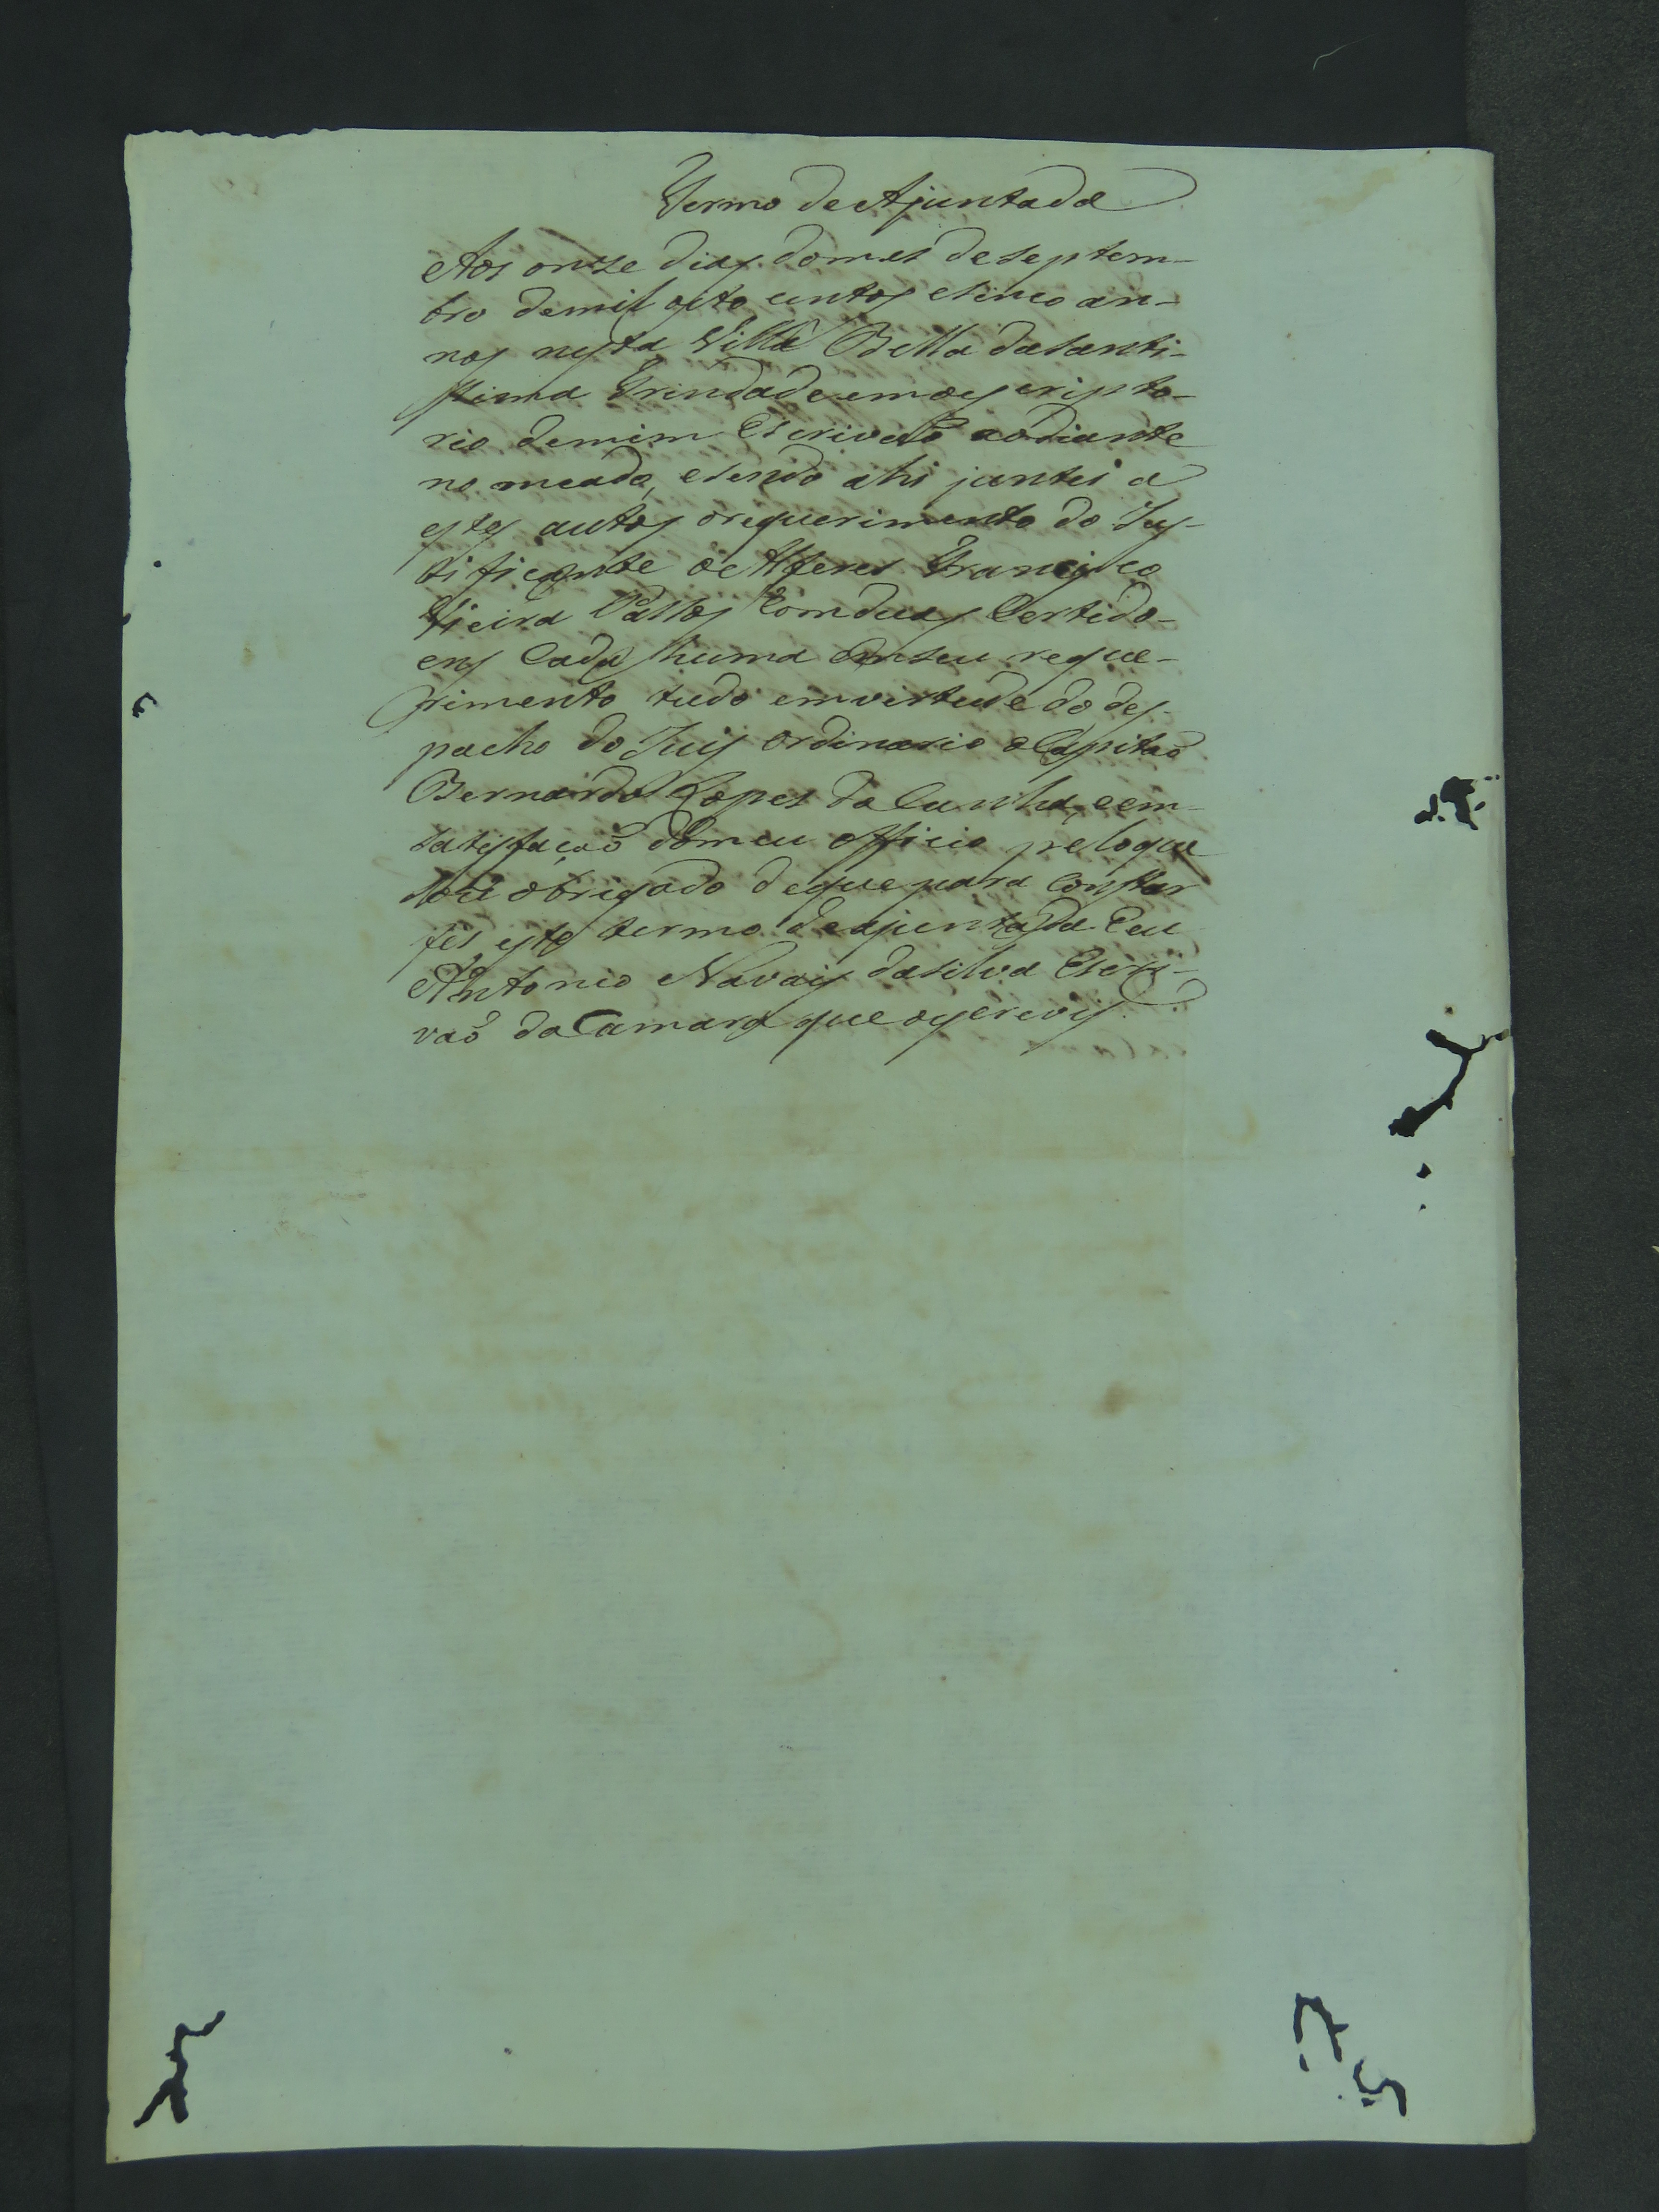 Termo de Ajuntada
Aos onze dias do mes de septem-
bro de mil oito centos e sinco an-
nos nesta Villa Bella da Santi-
ssima Trindade em o escripto-
rio de mim Escrivaõ ao diante
no meado, e sendo ahi juntei a
estes autos o requerimento do Jus-
tificante o Alferes Francisco
Vieira Passos Com duas Certido-
ens Cada huma em seu reque-
rimento tudo em virtude do des-
pacho do Juis ordinario o Capitaõ
Bernardo Lopes da Cunha, e em
satisfaçaõ do meu officio pelo que
sou obrigado de que para Constar
fes este termo de ajuntada. Eu
Antonio da Silva Escri-
vaõ da Camara que o escrevi.